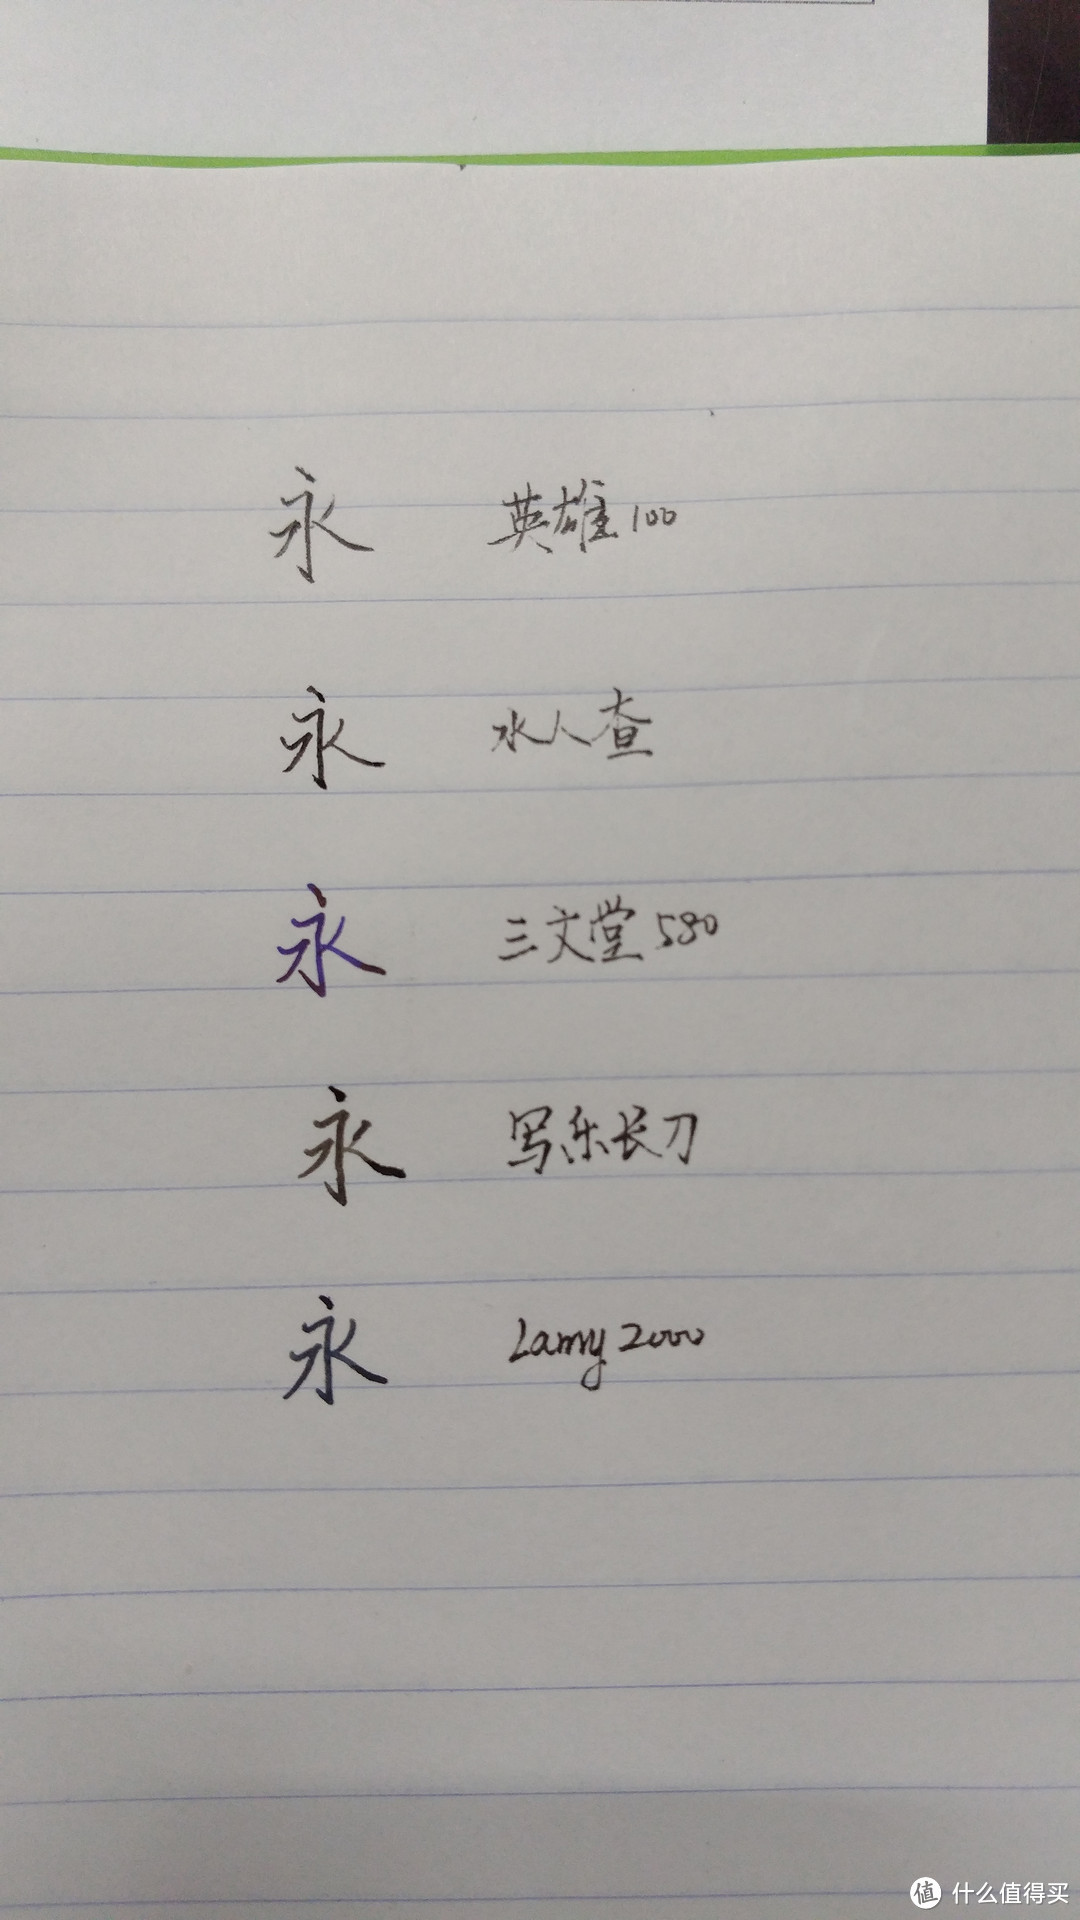 永 英雄100
永 水人查
永 三文堂580
永 写乐长刀
永 Lamy 2000
值 什么值得买